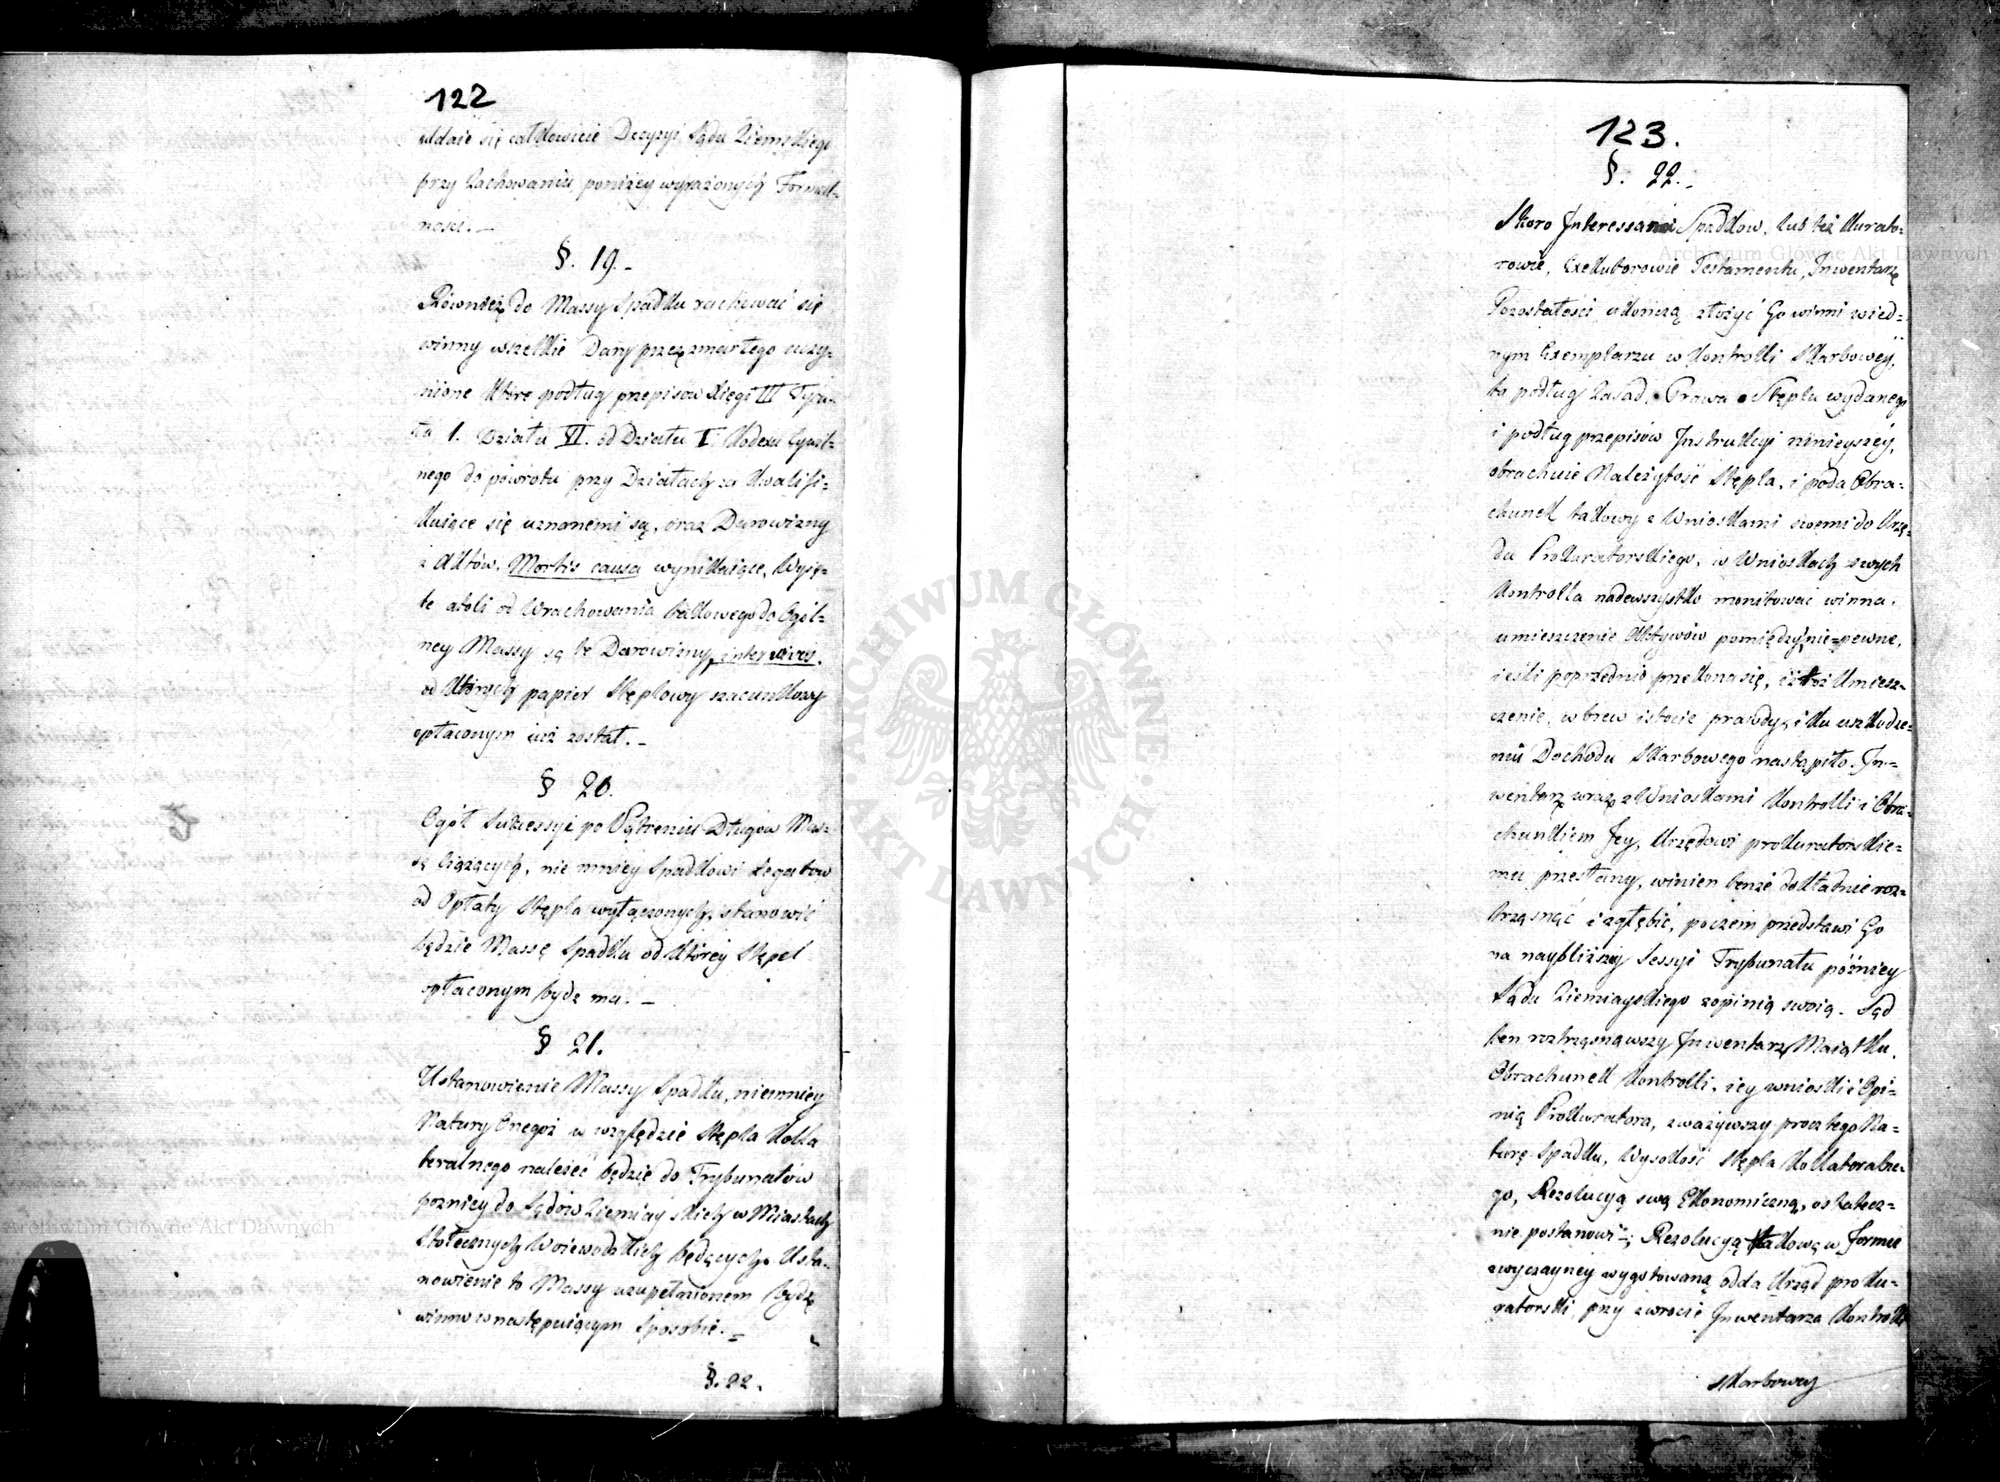 122
oddaie się całkowicie Decyzyi Sądu Ziemskiego
przy zachowaniu poniżey wyrażonych Formal-
ności. –
§. 19. –
Również do Massy Spadku rachować się
winny wszelkie Dary przez zmarłego uczy-
nione które podług przepisów Xięgi III Tytu-
łu 1. Działu VI. od Działu I Kodexu Cywil-
nego do powrotu przy Działach za kwalifi-
kuiące się uznanemi są, oraz Darowizny
z Aktów, Mortis causa wynikaiące, Wyię-
te atoli od Wrachowania takowego do Ogól-
ney Massy są te Darowizny, inter vivos,
od których papier Stęplowy szacunkowy
opłaconym iuż został. –
§ 20.
Ogół Sukcessyi po Potrąceniu Długów Mas-
sę Ciążących, nie mniey Spadkowi Legatów
od Opłaty Stępla wyłączonych, stanowić
będzie Massę Spadku od którey Stępel
opłaconym bydz ma. –
§ 21.
Ustanowienie Massy Spadku, niemniey
Natury Onegoż w względzie Stępla Kolla
teralnego należeć będzie do Trybunałów
pozniey do Sądów Ziemiayskich w Miastach
Stołecznych Woiewodzkich będących. Usta-
nowienie to Massy uzupełnionem bydz
winno w następuiącym Sposobie. =
§. 22.
123.
§. 22. –
Skoro Interessanci Spadkow, lub też Kurato-
rowie, Exekutorowie Testamentu, Inwentarz
Pozostałości ukończą złożyć Go winni w ied=
nym Exemplarzu w Kontrolli Skarbowey,
ta podług Zasad, Prawa o Stęplu wydanego
i podług przepisów Instrukcyi ninieyszéy,
obrachuie Należytość Stępla, i poda Obra=
chunek takowy z Wnioskami swemi do Urzę=
du Prokuratorskiego, w Wnioskach swych
Kontrolla nadewszystko monitować winna,
umieszczenie Aktywów pomiędzy nie=pewne,
ieśli poprzednio przekona się, iż toż Umiesz-
czenie, wbrew istocie prawdy, i ku uszkodze=
niu Dochodu Skarbowego nastąpiło. In-=
wentarz wraz z Wnioskami Kontrolli i Obra=
chunkiem Jey, Urzędowi prokuratorskie=
mu przesłany, winien tenże dokładnie roz=
trząsnąć i zgłębić, poczem przedstawi Go
na naybliższey Sessyi Trybunału późniey
Sądu Ziemiayskiego z opinią swoią. Sąd
ten roztrząsnąwszy Inwentarz Maiątku,
Obrachunek Kontrolli, iey wnioski i Opi=
nią Prokuratora, zważywszy procz tego Na=
turę Spadku, Wysokość Stępla Kollateralne-
go, Rezolucyą swą Ekonomiczną, ostatecz=
nie postanowi; Rezolucyą takową w formie
zwyczayney wygotowaną odda Urząd proku=
ratorski, przy zwrocie Inwentarza Kontrolli
Skarbowey
Archiwum Główne Akt Dawnych
Archiwum Główne Akt Dawnych
ARCHIWUM GŁÓWNE · AKT DAWNYCH ·